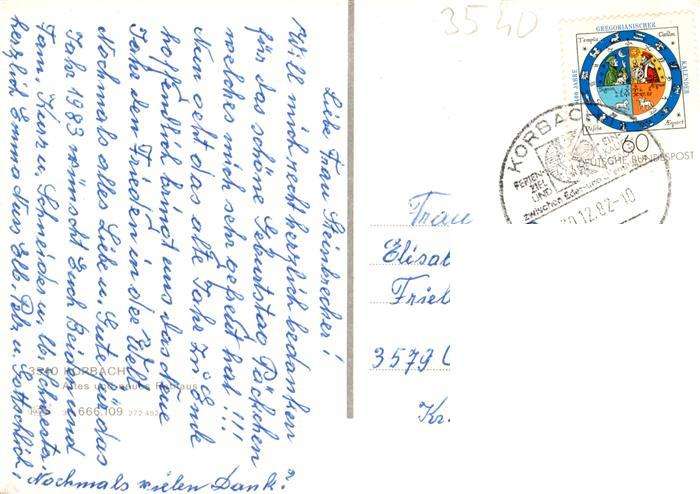 Liebe Frau Steinbrecher!
Will mich recht herzlich bedanken
für das schöne Geburtstag Päckchen
welches mich sehr gefreut hat!!!
Nun geht das alte Jahr zu Ende
hoffendlich bringt uns das Neue
Jahr den Frieden in der Welt
Nochmals alles Liebe u. Gute für das
Jahr 1983 wünscht Euch Beiden und
Fam. Kurz u. Schneider u.
herzlich Emma
Nochmals vielen Dank!
3540 KORBACH
Altes und neues Rathaus
666.109 272 482
3540
400 JAHRE GREGORIANISCHER KALENDER
60
DEUTSCHE BUNDESPOST
KORBACH
FERIEN-
ZIEL
UND
zwischen Eder- und
12.82-10
Frau
Elisab
Friel
3579
Kr.